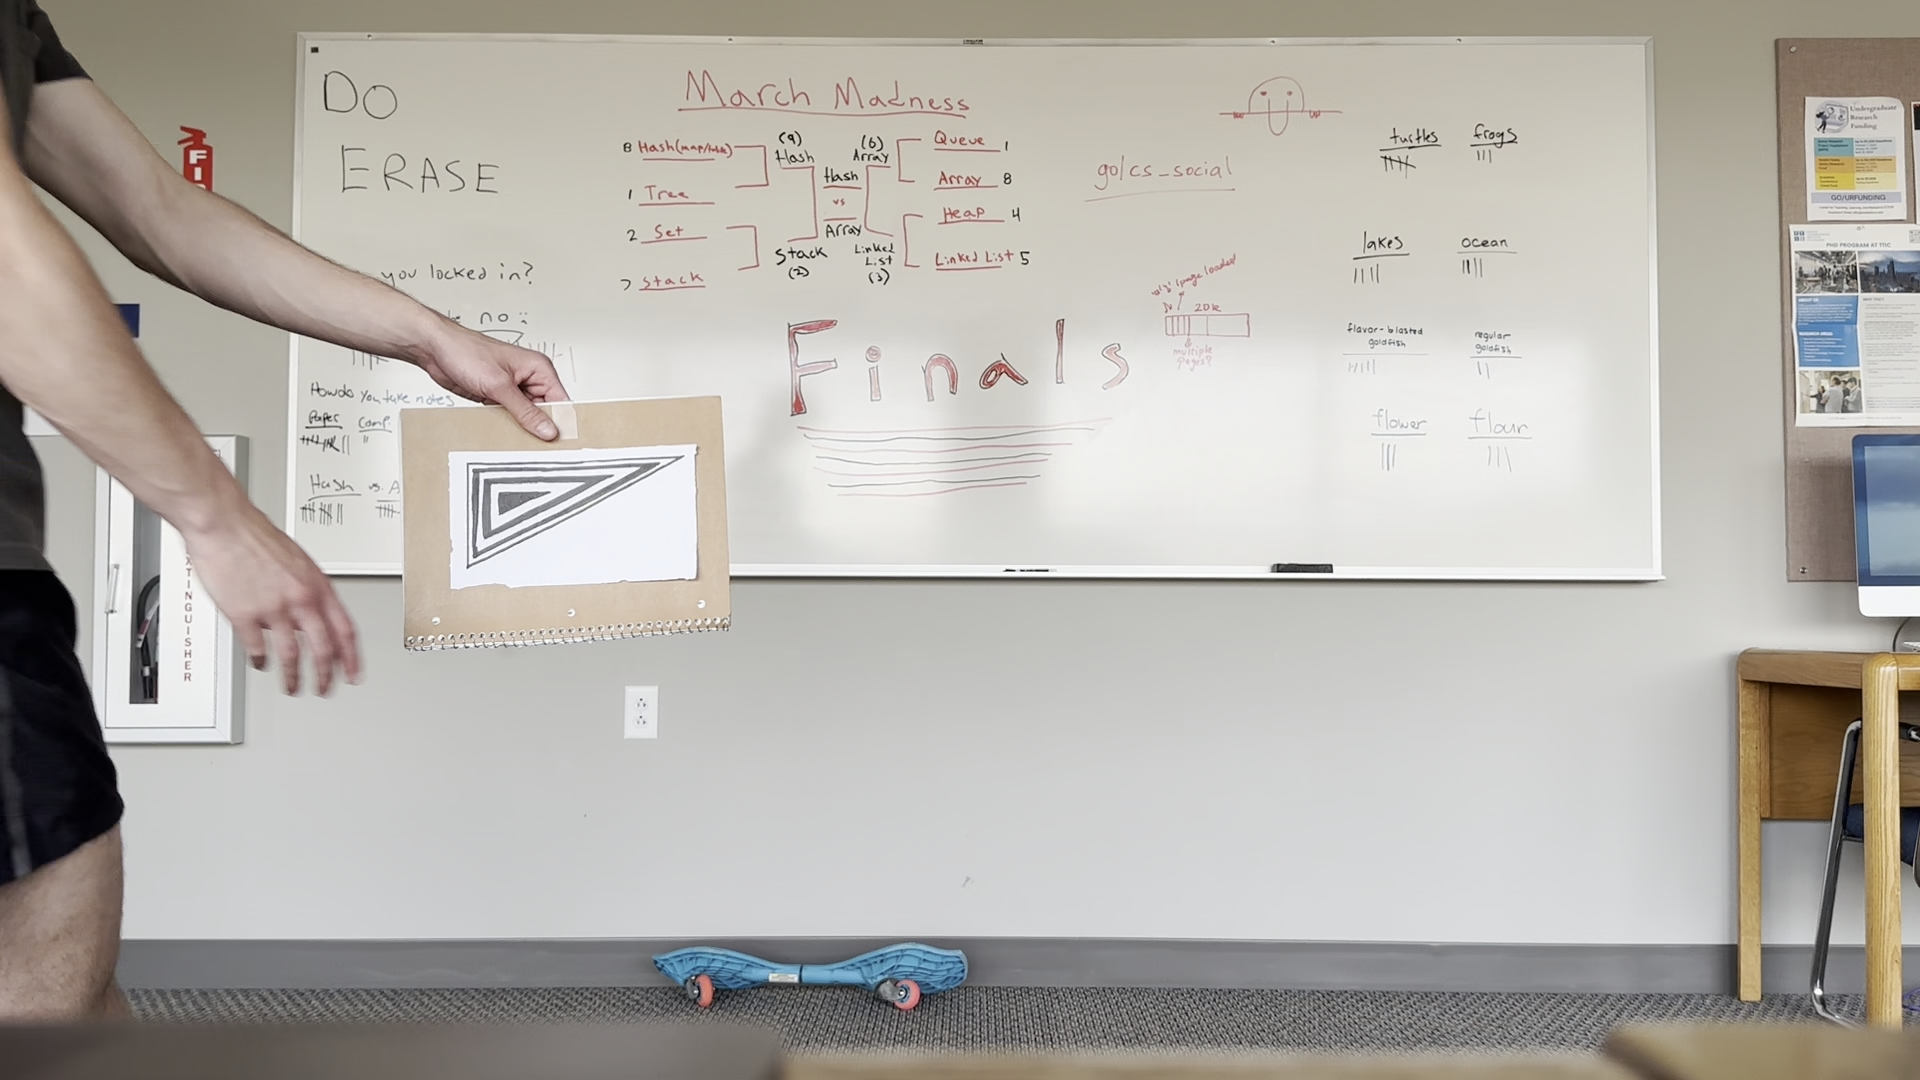 DO
ERASE
you locked in?
no
How do you take notes
Paper Comp.
Hash vs. A
March Madness
8 Hash(map/table)
1 Tree
2 Set
7 Stack
(9)
Hash
Stack
(2)
Hash
vs
Array
(6)
Array
Linked
List
(3)
Queue 1
Array 8
Heap 4
Linked List 5
Finals
go/cs_social
1 page loaded
20k
multiple
pages?
turtles frogs
lakes ocean
flavor-blasted
goldfish
regular
goldfish
flower flour
FI
XTINGUISHER
Undergraduate
Research
Funding
GO/URFUNDING
PHD PROGRAM AT TTIC